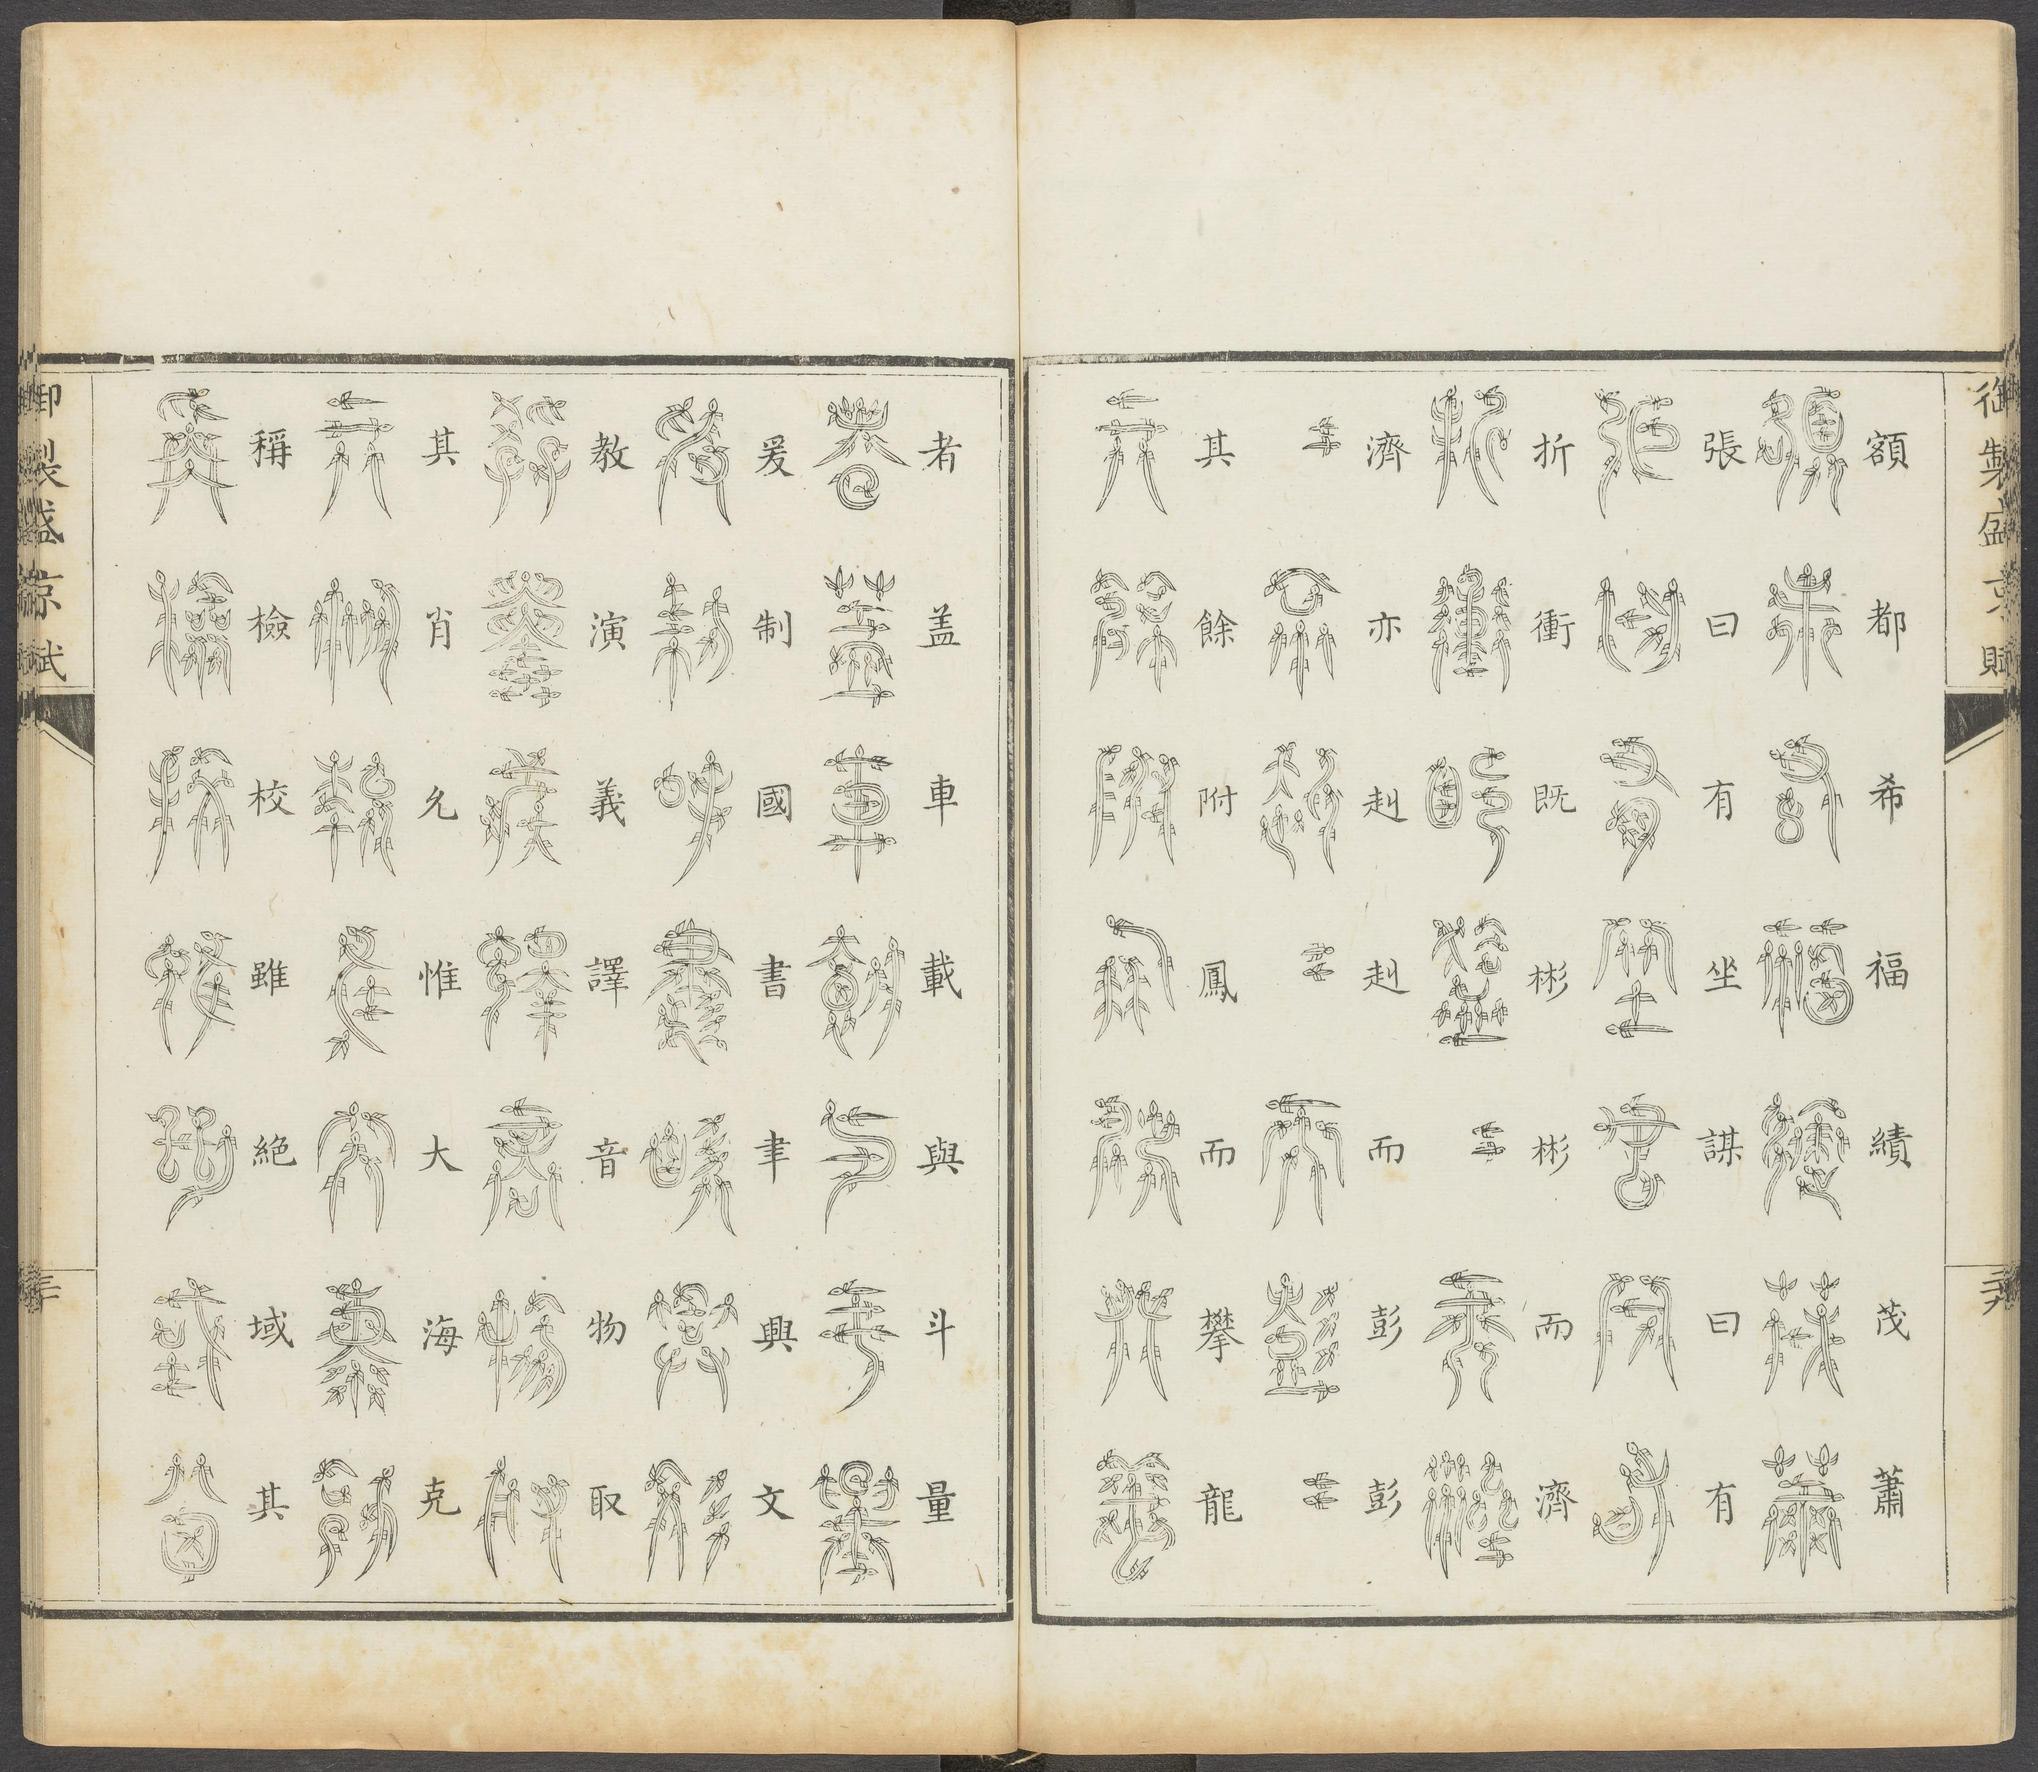 御製盛京賦
額都希福績茂蕭
張曰有坐謀曰有
折衝既彬彬而濟
濟亦赳赳而彭彭
其餘附鳳而攀龍
者盖車載與斗量
爰制國書聿興文
教演義譯音物取
其肖允惟大海克
稱檢校雖絕域其
御製盛京賦